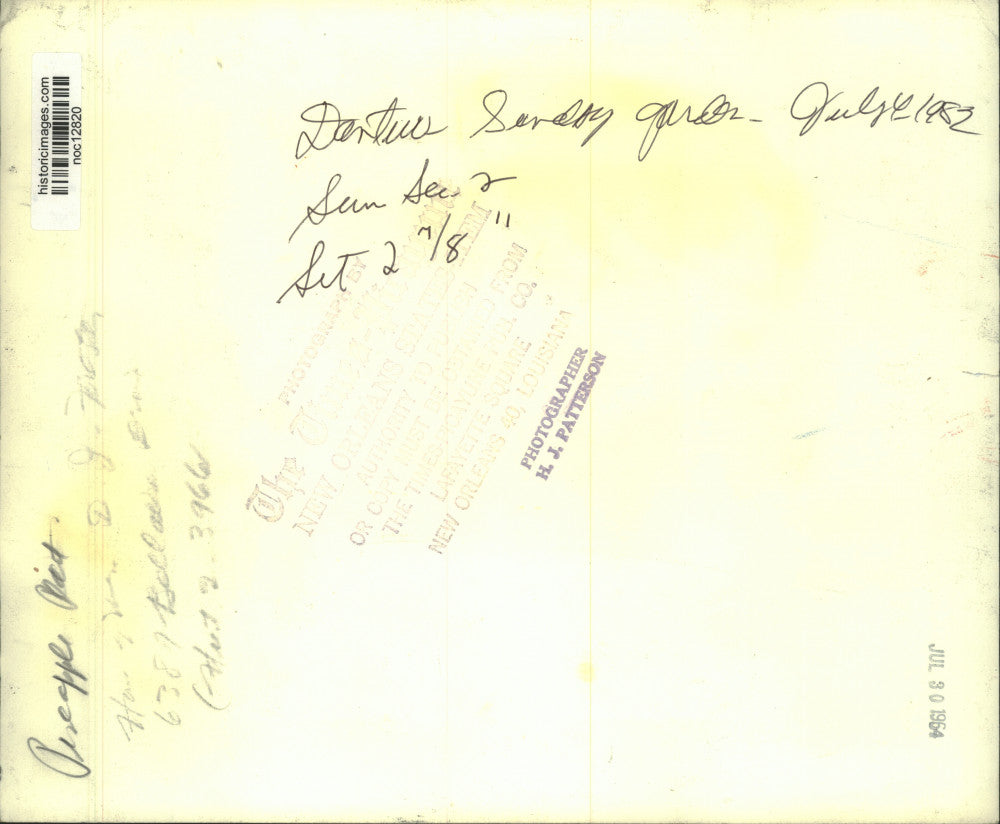 historicimages.com
noc12820
Sunday garden - July 4 1952
Sun Sec. 2
Set 2 7/8"
PHOTOGRAPH BY
The Times-Picayune
NEW ORLEANS STATES-ITEM
AUTHORITY TO PUBLISH
OR COPY MUST BE OBTAINED FROM
THE TIMES-PICAYUNE PUB. CO.
LAFAYETTE SQUARE
NEW ORLEANS 40, LOUISIANA
PHOTOGRAPHER
H. J. PATTERSON
JUL 30 1964
Pineapple Mint
Home
6387
2-3966